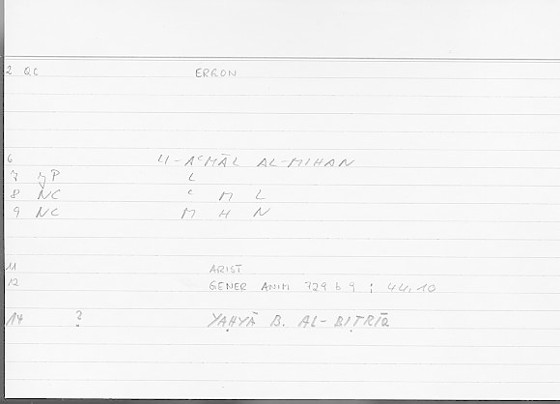 2 QC ERGON
6 LI-AʿMĀL AL-MIHAN
7 P L
8 NC ʿ M L
9 NC M H N
11 ARIST
12 GENER ANIM 729 b 9 ; 44,10
14 ? YAḤYĀ B. AL-BIṬRĪQ